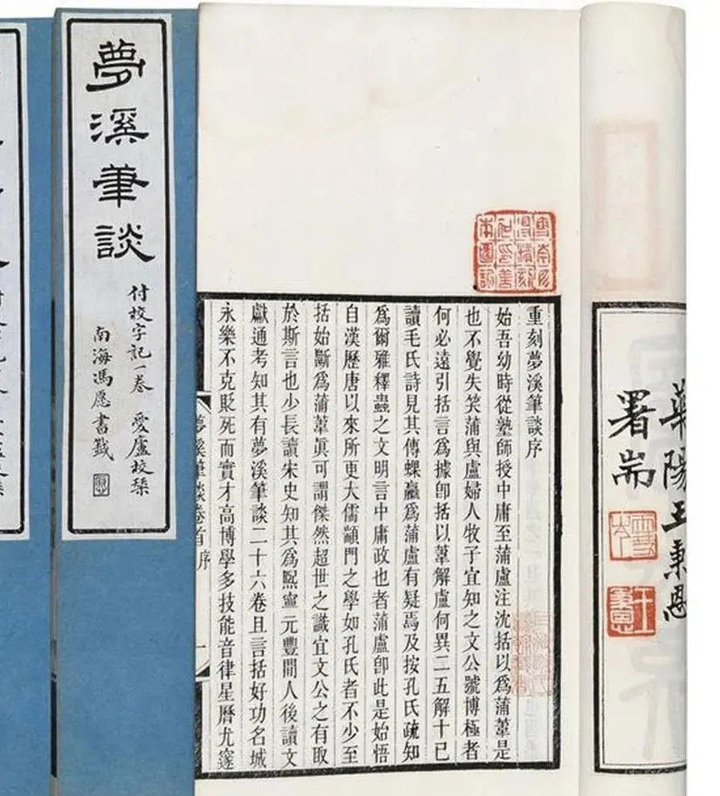 夢溪筆談
付校字記一卷 愛廬校栞
南海馮愿書籤
華陽王秉恩
署耑
重刻夢溪筆談序
始吾幼時從塾師授中庸至蒲盧注沈括以爲蒲葦是
也不覺失笑蒲與盧婦人牧子宜知之文公號博極者
何必遠引括言爲據卽括以葦解盧何異二五解十已
讀毛氏詩見其傳蜾蠃爲蒲盧有疑焉及按孔氏疏知
爲爾雅釋蟲之文明言中庸政也者蒲盧卽此是始悟
自漢歷唐以來所更大儒顓門之學如孔氏者不少至
括始斷爲蒲葦眞可謂傑然超世之識宜文公之有取
於斯言也少長讀宋史知其爲熙寧元豐間人後讀文
獻通考知其有夢溪筆談二十六卷且言括好功名城
永樂不克貶死而實才高博學多技能音律星曆尤邃
夢溪筆談卷首 序 一